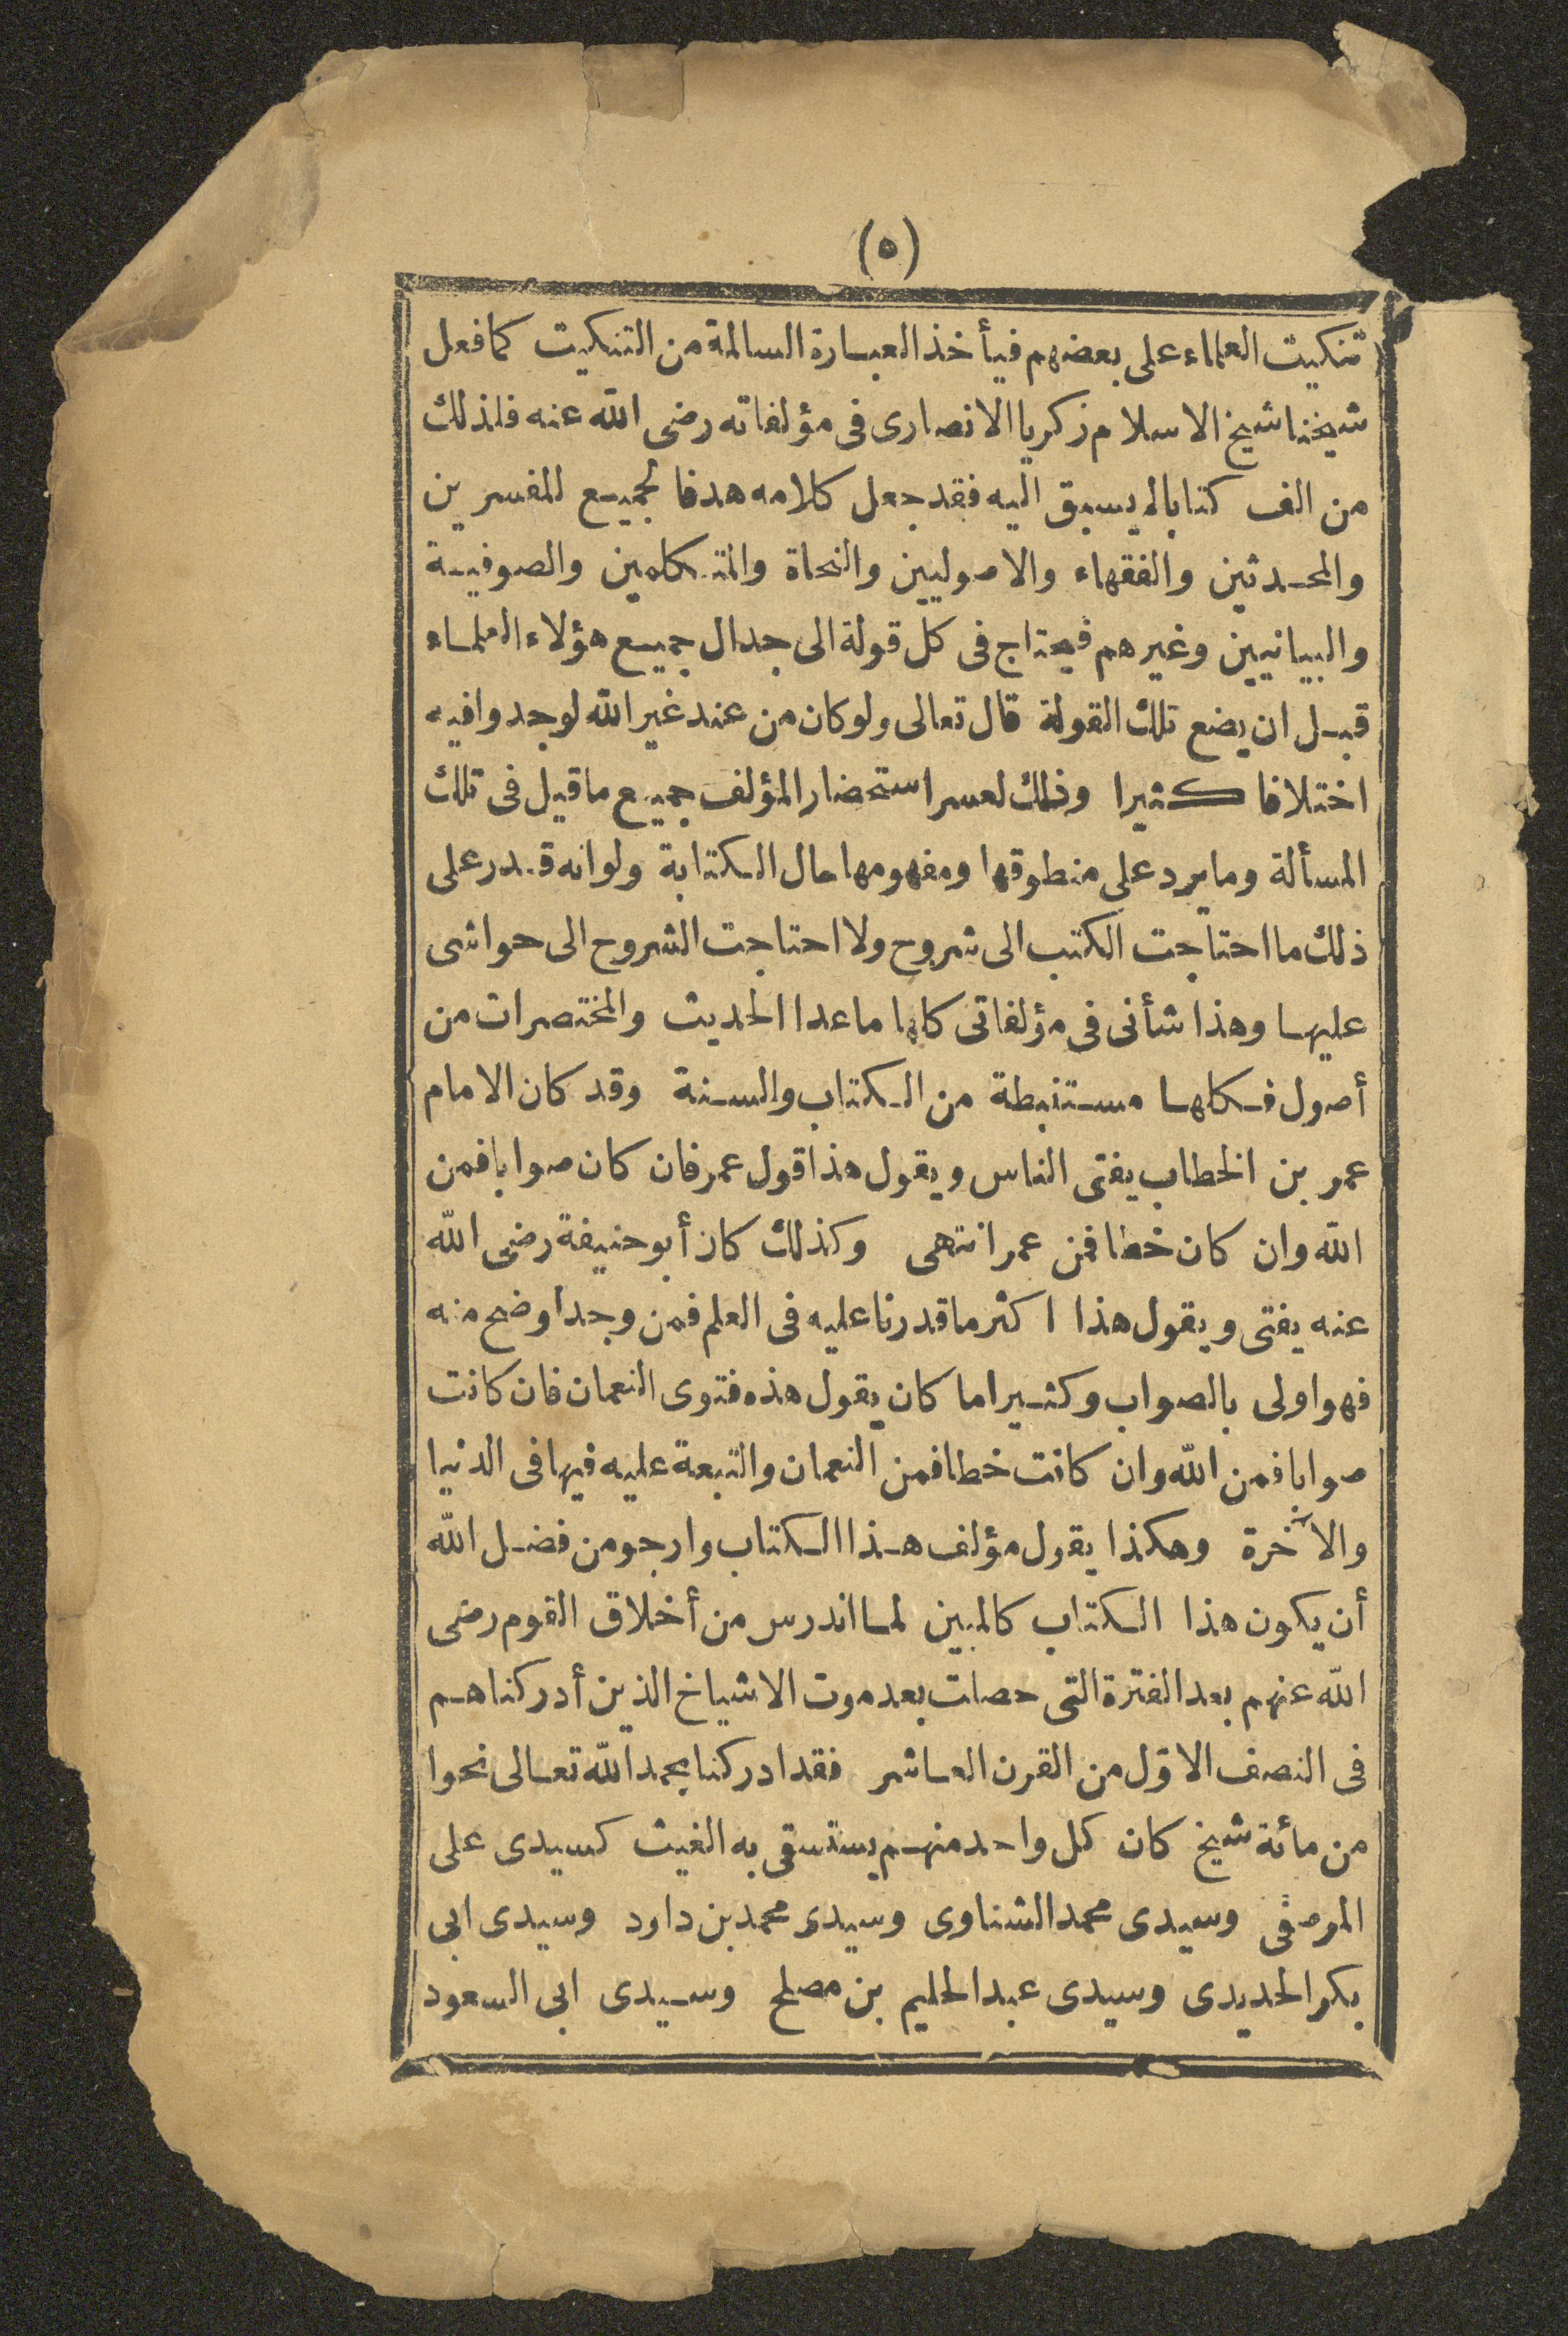 (٥)
تنكيت العلماء على بعضهم فيأخذ العبارة السالمة من التنكيت كما فعل
شيخنا شيخ الاسلام زكريا الانصارى فى مؤلفاته رضى الله عنه فلذلك
من الف كتابا لم يسبق اليه فقد جعل كلامه هدفا لجميع المفسرين
والمحدثين والفقهاء والاصوليين والنحاة والمتكلمين والصوفية
والبيانيين وغيرهم فيحتاج فى كل قولة الى جدال جميع هؤلاء العلماء
قبل ان يضع تلك القولة قال تعالى ولو كان من عند غير الله لوجدوا فيه
اختلافا كثيرا وذلك لعسر استحضار المؤلف جميع ما قيل فى تلك
المسألة وما يرد على منطوقها ومفهومها حال الكتابة ولو انه قدر على
ذلك ما احتاجت الكتب الى شروح ولا احتاجت الشروح الى حواشى
عليها وهذا شأنى فى مؤلفاتى كلها ما عدا الحديث والمختصرات من
أصول فكلها مستنبطة من الكتاب والسنة وقد كان الامام
عمر بن الخطاب يفتى الناس ويقول هذا قول عمر فان كان صوابا فمن
الله وان كان خطا فمن عمر انتهى وكذلك كان أبو حنيفة رضى الله
عنه يفتى ويقول هذا اكثر ما قدرنا عليه فى العلم فمن وجد اوضح منه
فهو اولى بالصواب وكثيرا ما كان يقول هذه فتوى النعمان فان كانت
صوابا فمن الله وان كانت خطا فمن النعمان والتبعة عليه فيها فى الدنيا
والآخرة وهكذا يقول مؤلف هذا الكتاب وارجو من فضل الله
أن يكون هذا الكتاب كالمبين لما اندرس من أخلاق القوم رضى
الله عنهم بعد الفترة التى حصلت بعد موت الاشياخ الذين أدركناهم
فى النصف الاوّل من القرن العاشر فقد ادركنا بحمد الله تعالى نحوا
من مائة شيخ كان كل واحد منهم يستسقى به الغيث كسيدى على
المرصفى وسيدى محمد الشناوى وسيدى محمد بن داود وسيدى ابى
بكر الحديدى وسيدى عبد الحليم بن مصلح وسيدى ابى السعود